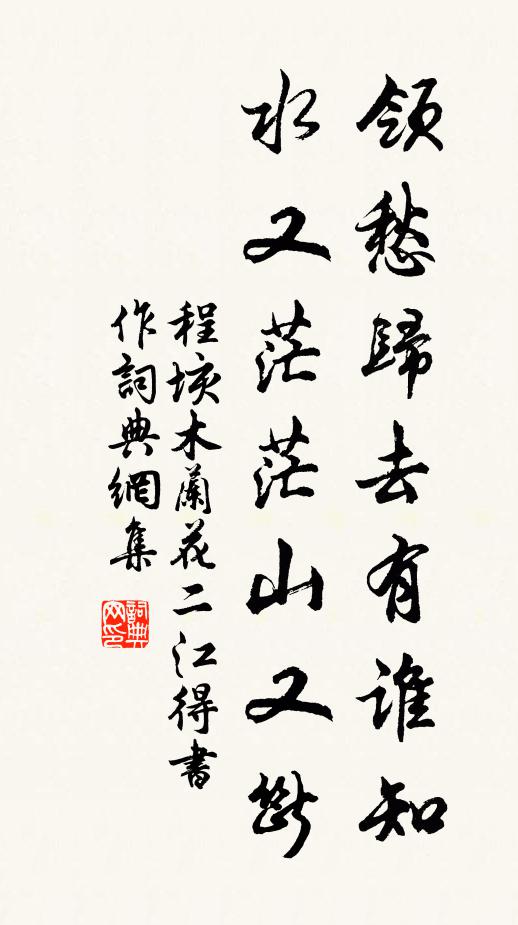 領愁歸去有誰知
水又茫茫山又斷
程垓木蘭花二江得書
作詞典網集
詞典網印